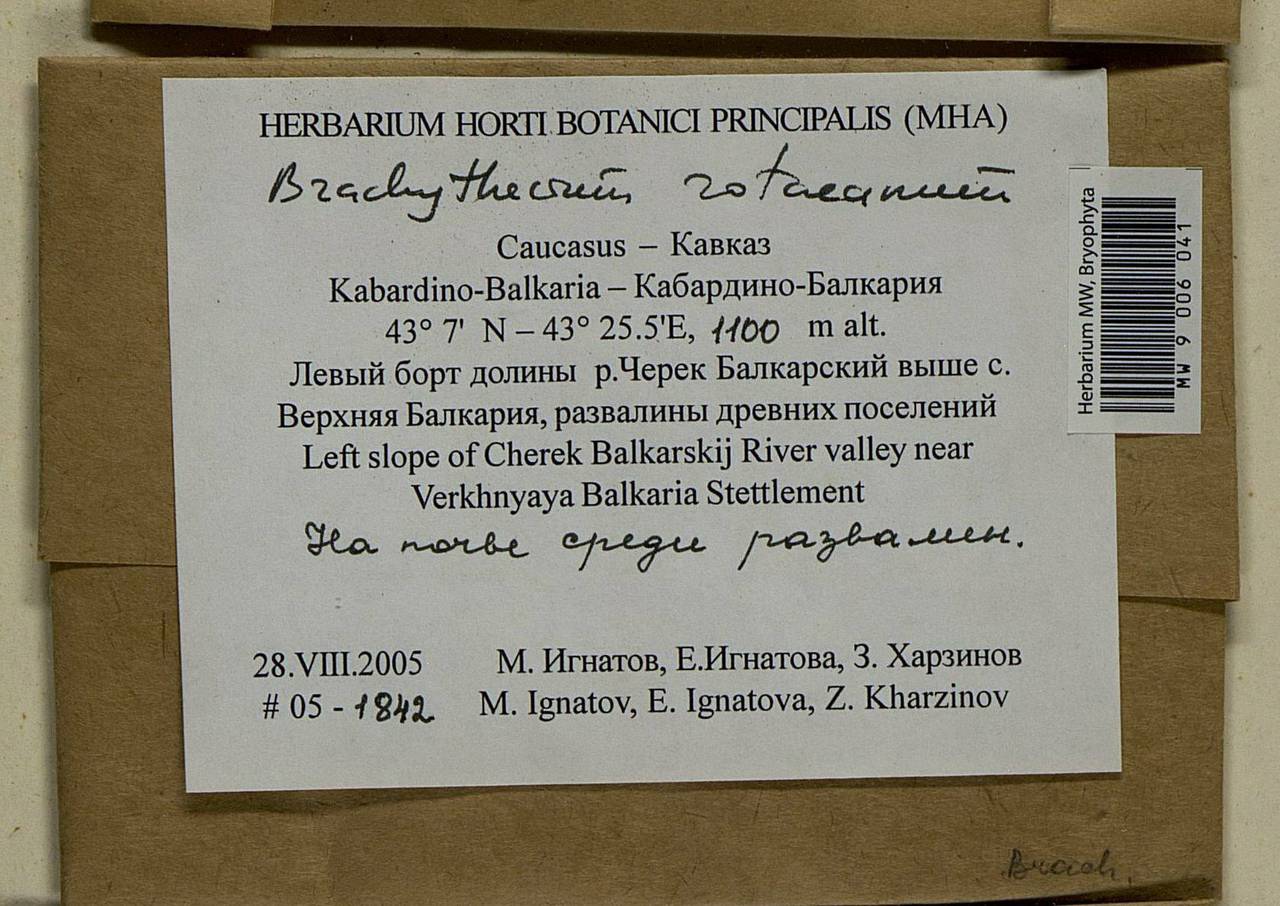 HERBARIUM HORTI BOTANICI PRINCIPALIS (MHA)
Brachythecium rotaeanum
Caucasus – Кавказ
Kabardino-Balkaria – Кабардино-Балкария
43° 7' N – 43° 25.5'E, 1100 m alt.
Левый борт долины р.Черек Балкарский выше с.
Верхняя Балкария, развалины древних поселений
Left slope of Cherek Balkarskij River valley near
Verkhnyaya Balkaria Stettlement
На почве среди развалин.
28.VIII.2005 М. Игнатов, Е.Игнатова, З. Харзинов
# 05 - 1842 M. Ignatov, E. Ignatova, Z. Kharzinov
Herbarium MW, Bryophyta
MW 9 006 041
Brach.